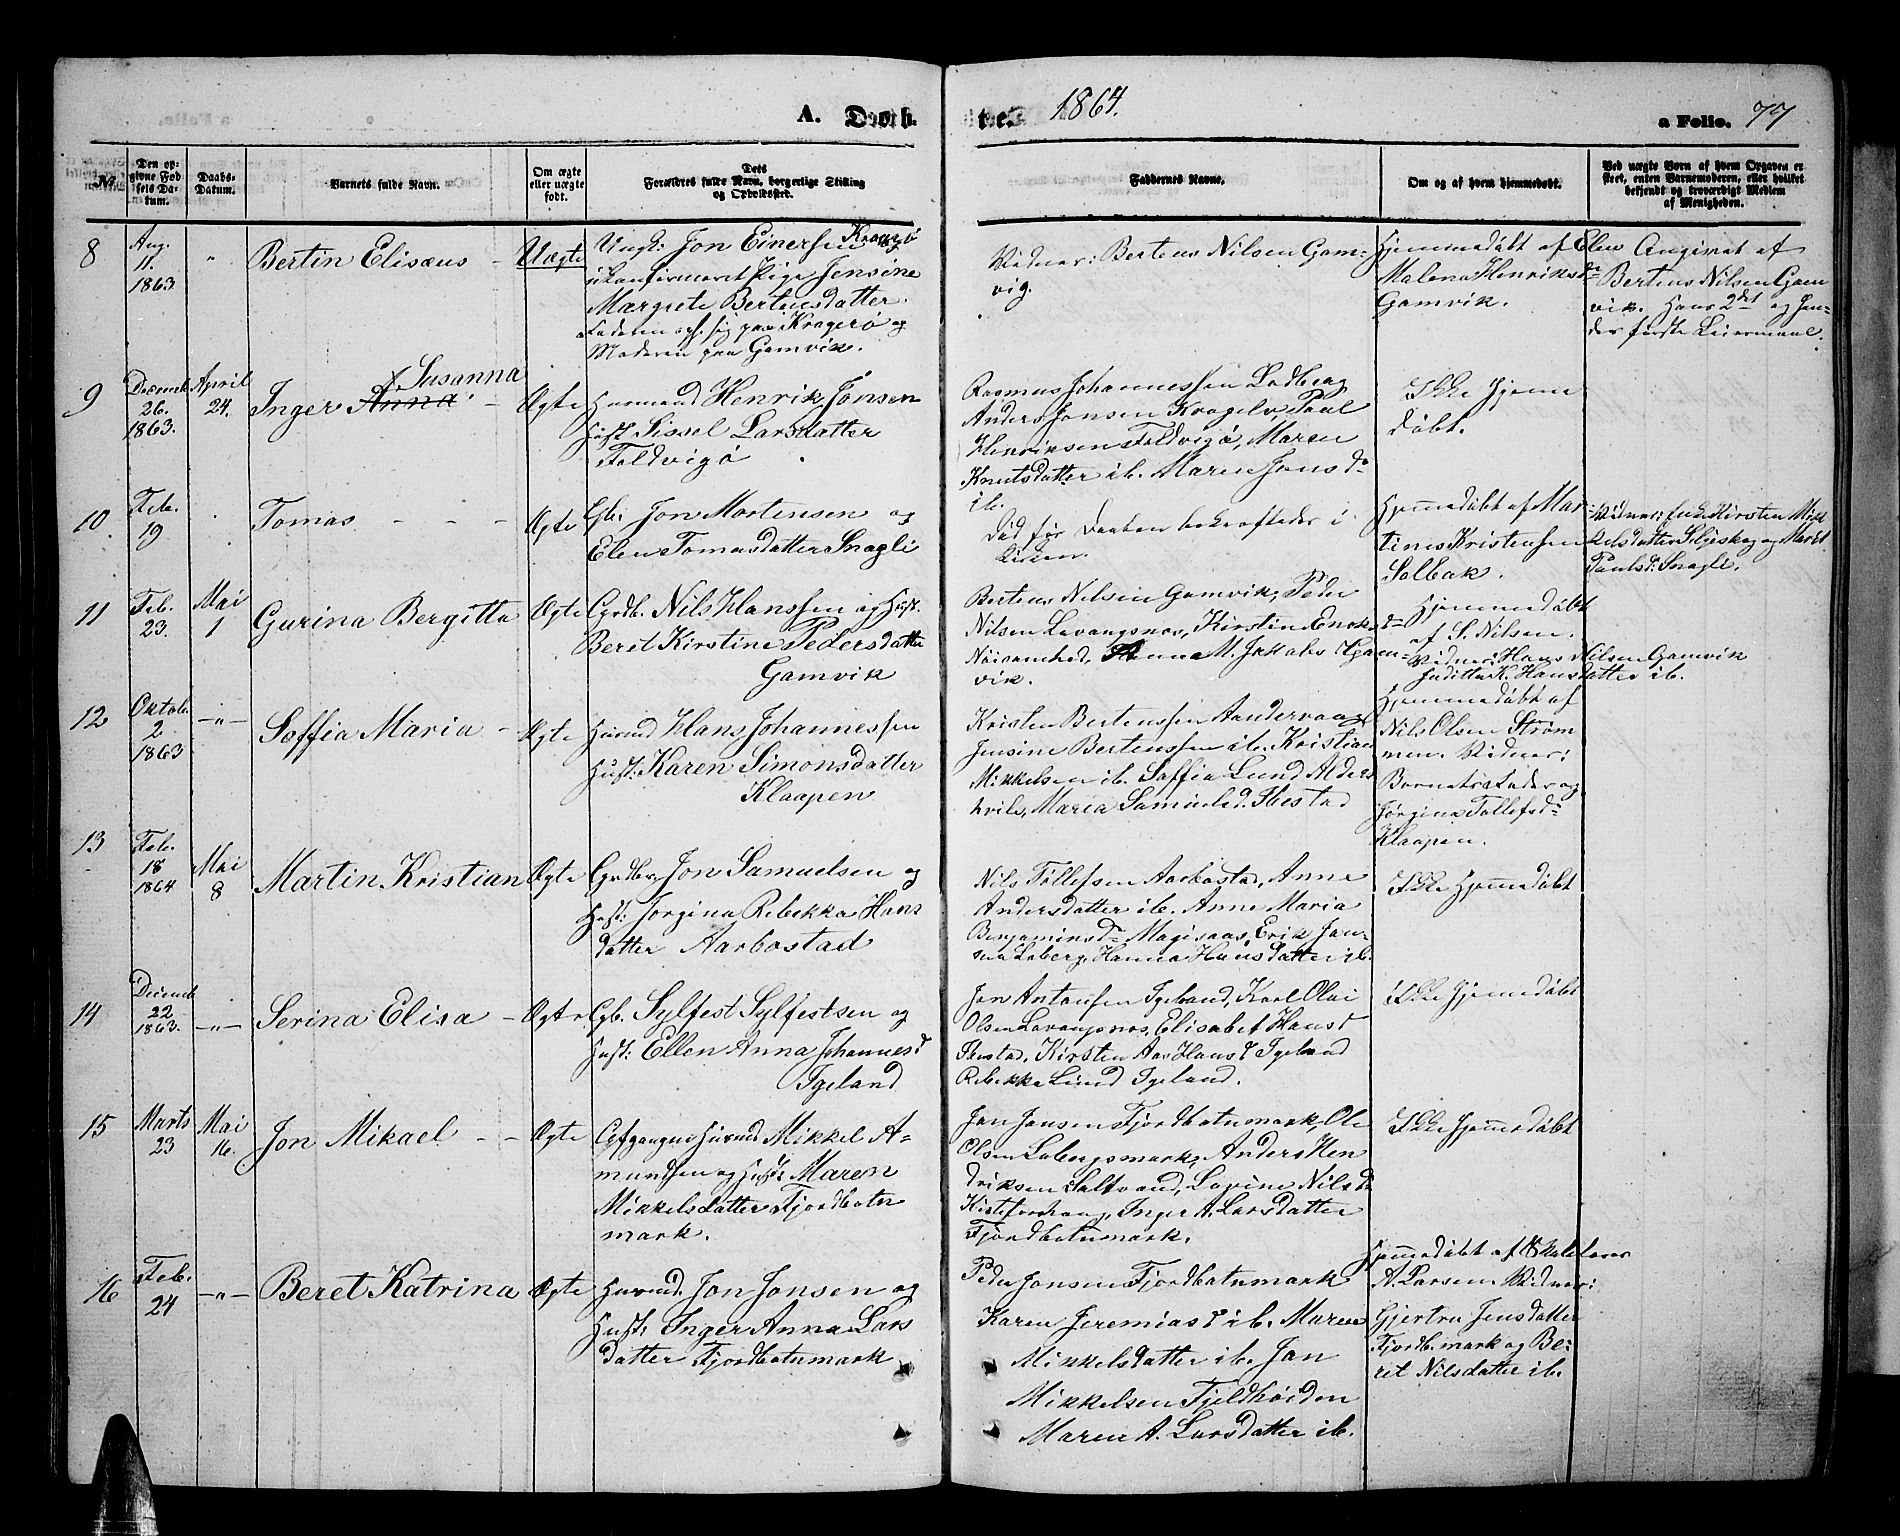 A. Døbte. 1864. a Folio. 77
№
Den opgivne Fødsels Datum.
Daabs-Datum.
Barnets fulde Navn.
Om ægte eller uægte født.
Dets Forældres fulde Navn, borgerlige Stilling og Opholdssted.
Faddernes Navne.
Om og af hvem hjemmedøbt.
Ved uægte Børn af hvem Opgaven er skeet, enten Barnemoderen, eller hvilket bekjendt og troværdigt Medlem af Menigheden.
8
Aug.
11.
1863
"
Bertin Elisæus
Uægte
Ungk: Jon Einersen Kragerø
ukonfirmeret Pige Jensine
Margrete Bertensdatter.
Faderen oph. sig paa Kragerø og
Moderen paa Gamvik.
Vidner: Bertens Nilsen Gam-
vig.
Hjemmedøbt af Elen
Malena Henriksd.
Gamvik.
Angivet af
Bertens Nilsen Gam
vik. Hans 2det og hen-
des første Leiermaal.
9
Decemb.
26.
1863.
April
24.
Susanna
Inger Anna
Ægte
Husmand Henrik Jonsen
Hust. Sissel Larsdatter
Foldvigø
Rasmus Johannessen Lodberg
Anders Jonsen Kragelv, Paul
Henriksen Foldvigø, Maren
Knutsdatter ib. Maren Jonsd.
ib.
Ikke hjeme
døbt.
10
Feb.
19
Tomas
Ægte
Gbr: Jon Mortensen og
Elen Tomasdatter Snagli
Død før Daaben bekræftedes i
Kirken.
Hjemmedøbt af Mar
tines Kristensen
Solbak.
Vidner: Enke Kirsten Mik
kelsdatter Seljeskog og Maret
Paulsd: Snagli.
11
Feb.
23.
Mai
1
Gurina Bergitta
Ægte
Grdb. Nils Hanssen og Hust.
Beret Kirstine Pedersdatter
Gamvik
Bertens Nilsen Gamvik, Peder
Nilsen Lavangsnes, Kirstin Enoks
d- Nøisomhed, Anna M. Jakobs Gam-
vik.
Hjemmedøbt
af S. Nilsen.
Vidner: Hans Nilsen Gamvik
Juditha K. Hansdatter ib.
12
Oktob.
2
1863
-"-
Soffia Maria
Ægte
Husmd Hans Johannessen
Hust: Karen Simonsdatter
Klaapen
Kristen Bertenssen Aandervaag
Jensine Bertenssen ib. Kristian
Mikkelsen ib. Soffia Lund Alders
hvile, Maria Samuelsd. Ibestad
Hjemmedøbt af
Nils Olsen Strøm
men. Vidner:
Barnets Fader og
Jørgina Tollefsd.
Klaapen.
13
Feb.
18
1864
Mai
8
Martin Kristian
Ægte
Grdbr. Jon Samuelsen og
Hust: Jorgina Rebekka Hans
datter Aarbostad
Nils Tollefsen Aarbostad, Anne
Andersdatter ib. Anne Maria
Benjaminsd. Magisaas, Erik Jon-
sen Laberg, Hanna Hansdatter ib.
Ikke hjemmedøbt
14
Decemb.
22
1863.
-"-
Serina Elisa
Ægte
Gb. Sylfest Sylfestsen og
Hust: Ellen Anna Johannesd
Igeland
Jon Antonsen Igeland, Karl Olai
Olsen Lavangsnes, Elisabet Hansd
Ibestad, Kirsten Aas Hansd Igeland
Rebekka Lund Igeland.
Ikke hjemedøbt
15
Marts
23
Mai
16.
Jon Mikael
Ægte
Opgangne Husmd Mikkel A-
mundsen og Hust: Maren
Mikkelsdatter Fjordbotn
mark.
Jon Jonsen Fjordbotnmark, Ole
Olsen Labergsmark, Anders Hen
driksen Saltvand, Lovine Nilsd
Kisteforhaug, Inger A. Larsdatter
Fjordbotnmark.
Ikke hjemedøbt
16
Feb.
24
-"-
Beret Katrina
Ægte
Husmd. Jon Jonsen og
Hust: Inger Anna Lars
datter Fjordbotnmark
Peder Jonsen Fjordbotnmark
Karen Jeremiasd ib. Maren
Mikkelsdatter ib. Jon
Mikkelsen Fjeldhøiden
Maren A. Larsdatter ib.
Hjemedøbt af Skolelærer
A. Larsen Vidner:
Gjertru Jensdatter
Fjordb.mark og Be-
ret Nilsdatter ib.